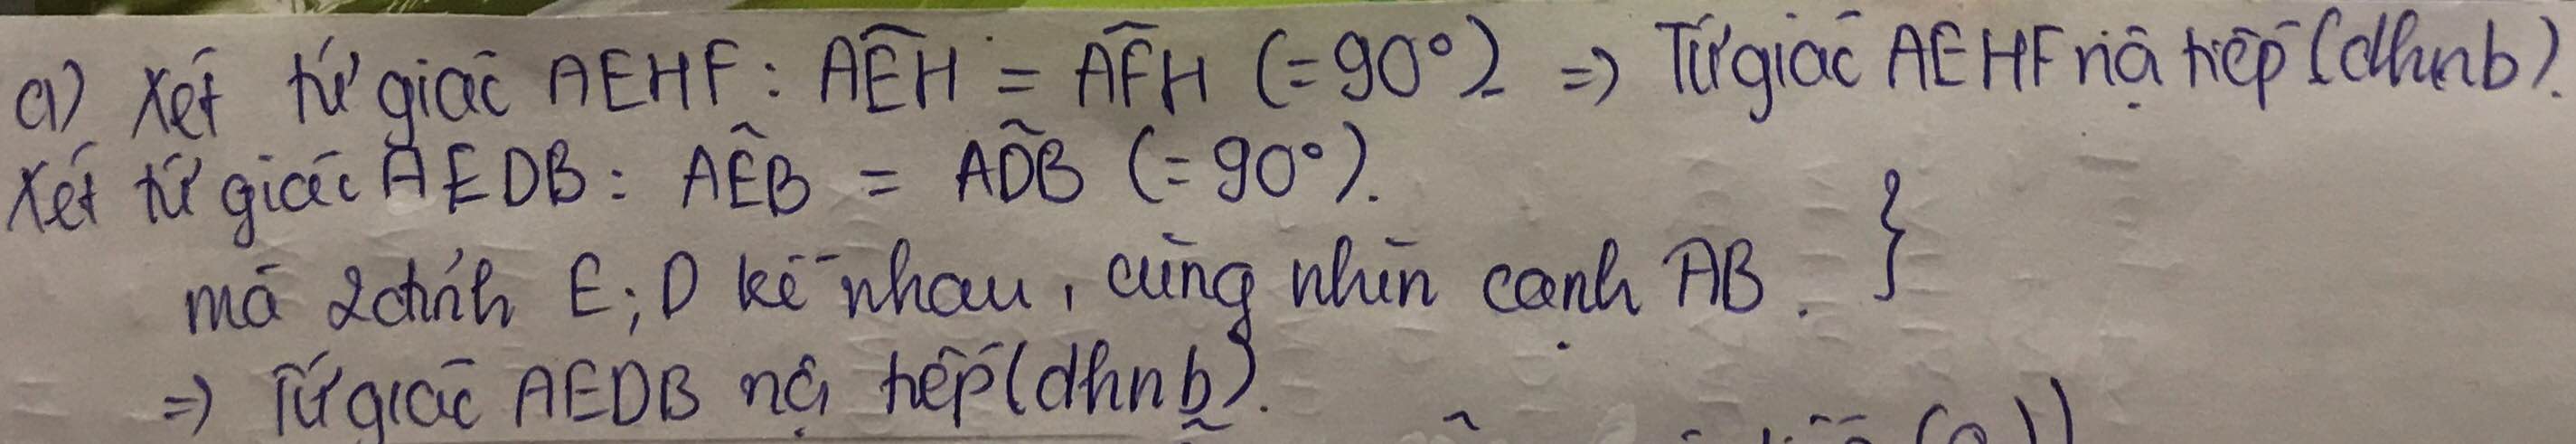 a) Xét tứ giác AEHF: AÊH = AF̂H (=90°) => Tứ giác AEHF nội tiếp (dhnb).
Xét tứ giác AEDB: AÊB = AD̂B (=90°).
mà 2 đỉnh E; D kề nhau, cùng nhìn cạnh AB. }
=> Tứ giác AEDB nội tiếp (dhnb).